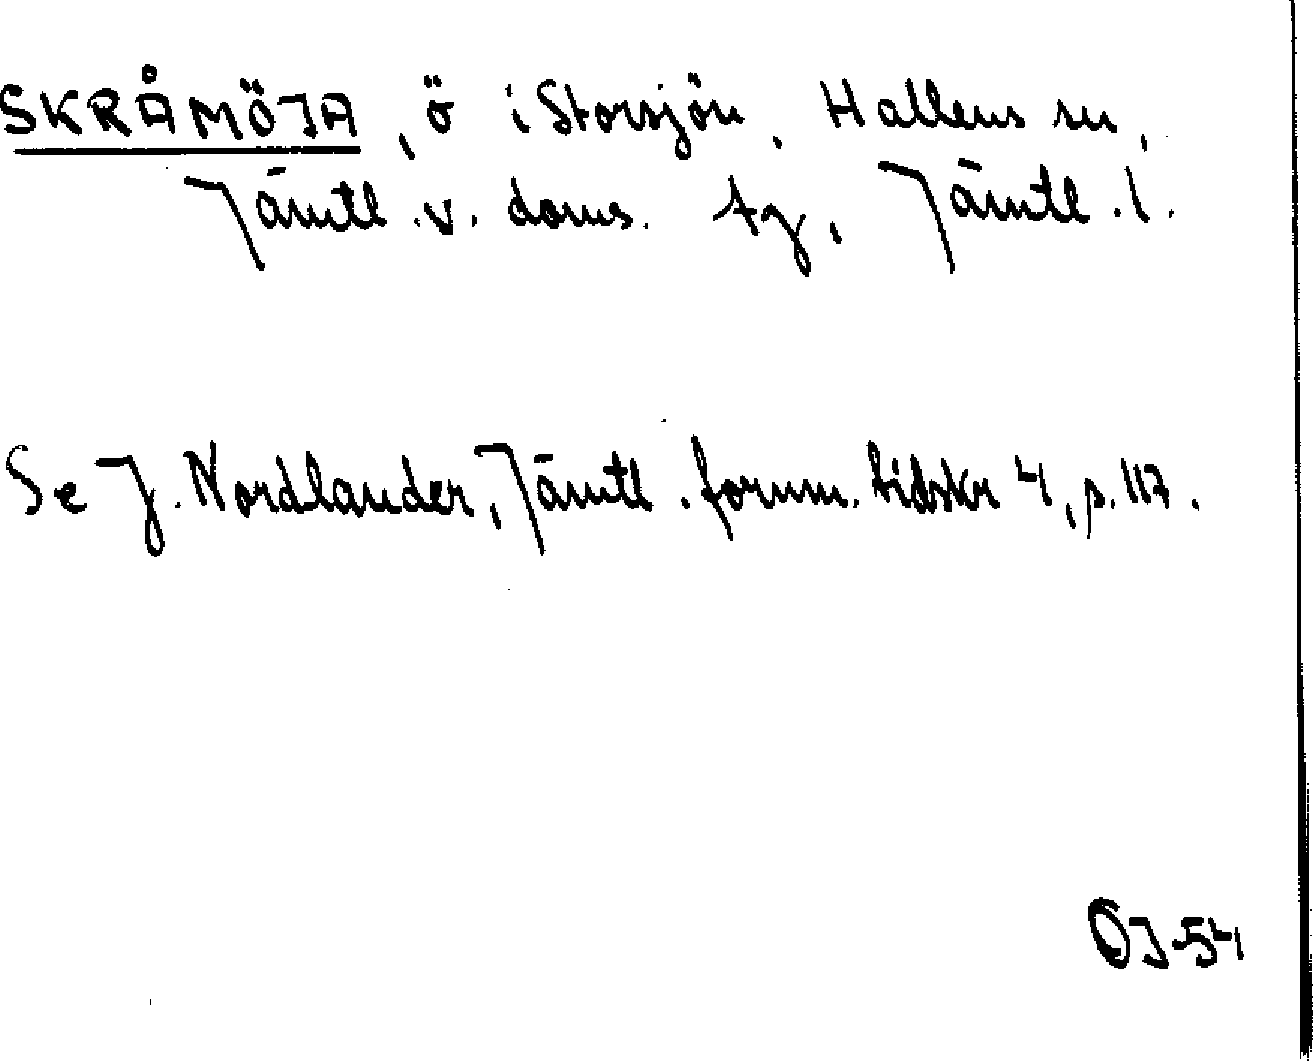 SKRÅMÖJA, ö i Storsjön, Hallens sn,
Jämtl. v. doms. tg, Jämtl. l.
Se J. Nordlander, Jämtl. fornm. tidskr 4, p. 117.
OJ-54